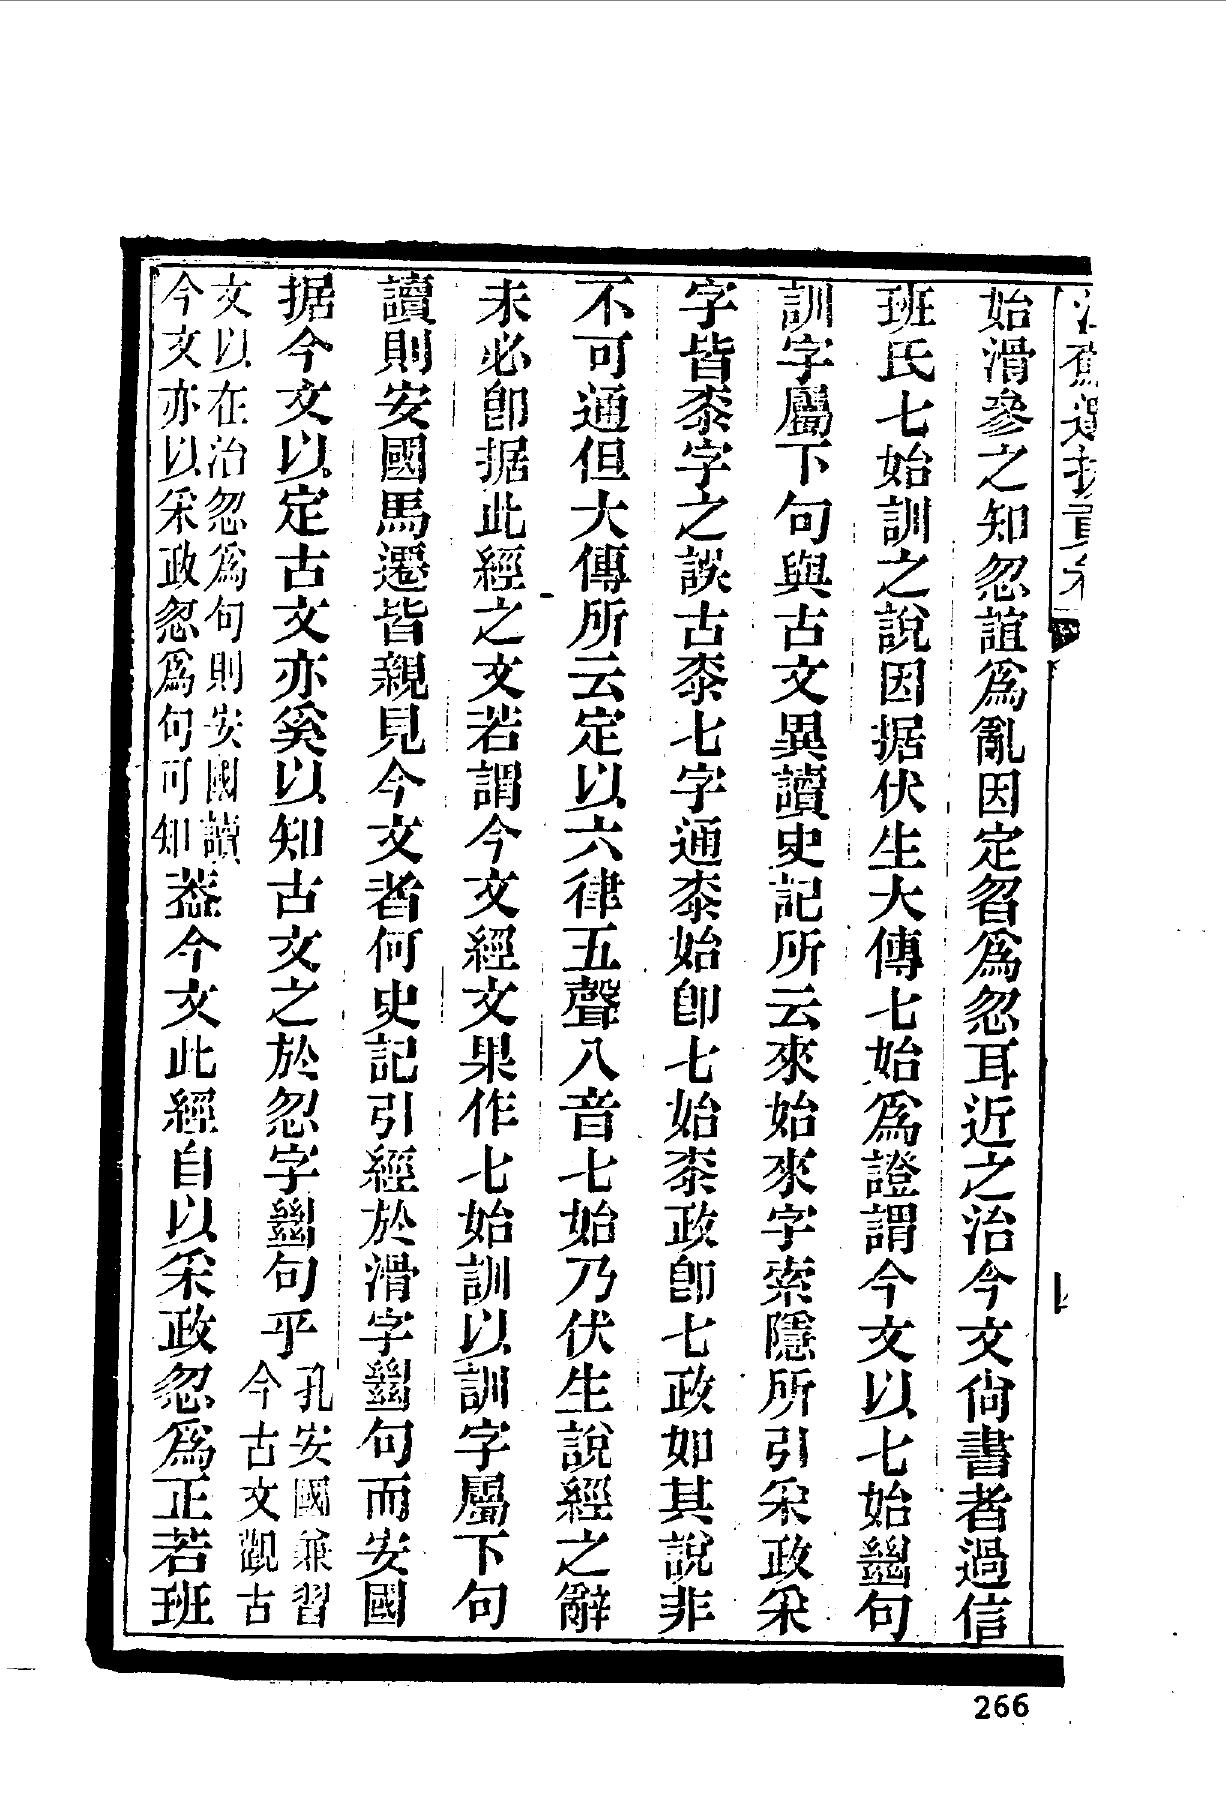 始滑參之知忽誼爲亂因定曶爲忽耳近之治今文尙書者過信
班氏七始訓之說因据伏生大傳七始爲證謂今文以七始㡭句
訓字屬下句與古文異讀史記所云來始來字索隱所引采政采
字皆桼字之誤古桼七字通桼始卽七始桼政卽七政如其說非
不可通但大傳所云定以六律五聲八音七始乃伏生說經之辭
未必卽据此經之文若謂今文經文果作七始訓以訓字屬下句
讀則安國馬遷皆親見今文者何史記引經於滑字㡭句而安國
据今文以定古文亦奚以知古文之於忽字㡭句乎孔安國兼習
今古文觀古
文以在治忽爲句則安國讀
今文亦以采政忽爲句可知葢今文此經自以采政忽爲正若班
266